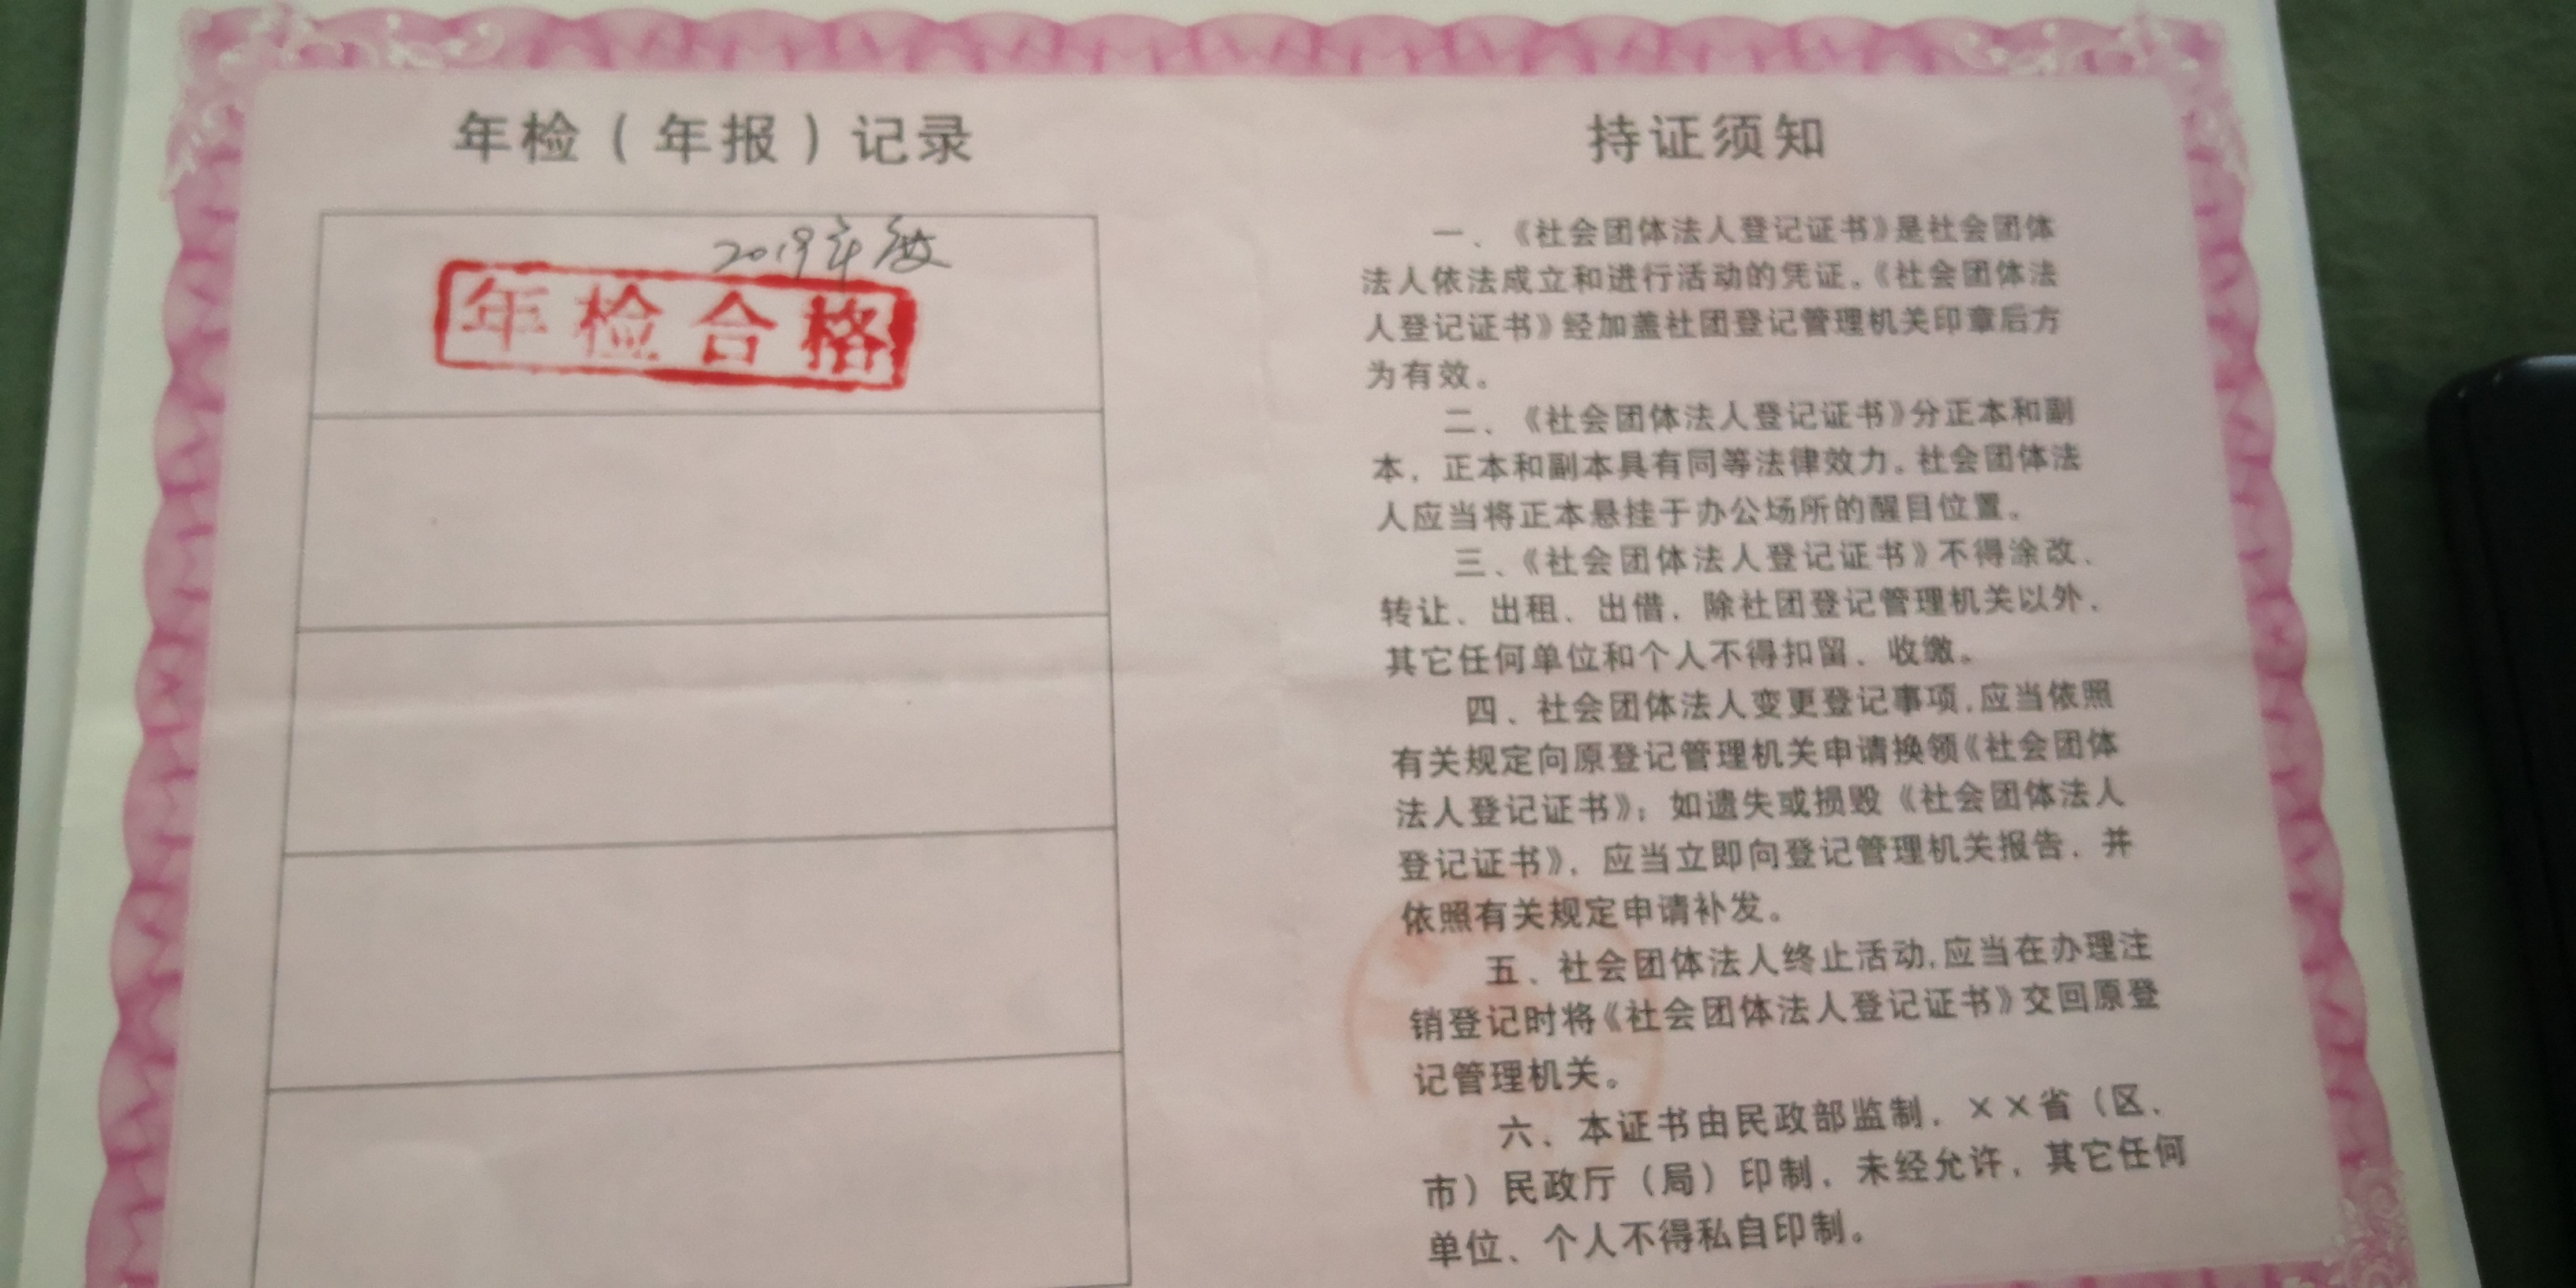 年检（年报）记录
2019年度
年检合格
持证须知
一、《社会团体法人登记证书》是社会团体
法人依法成立和进行活动的凭证。《社会团体法
人登记证书》经加盖社团登记管理机关印章后方
为有效。
二、《社会团体法人登记证书》分正本和副
本，正本和副本具有同等法律效力。社会团体法
人应当将正本悬挂于办公场所的醒目位置。
三、《社会团体法人登记证书》不得涂改、
转让、出租、出借，除社团登记管理机关以外，
其它任何单位和个人不得扣留、收缴。
四、社会团体法人变更登记事项，应当依照
有关规定向原登记管理机关申请换领《社会团体
法人登记证书》；如遗失或损毁《社会团体法人
登记证书》，应当立即向登记管理机关报告，并
依照有关规定申请补发。
五、社会团体法人终止活动，应当在办理注
销登记时将《社会团体法人登记证书》交回原登
记管理机关。
六、本证书由民政部监制，××省（区、
市）民政厅（局）印制，未经允许，其它任何
单位、个人不得私自印制。